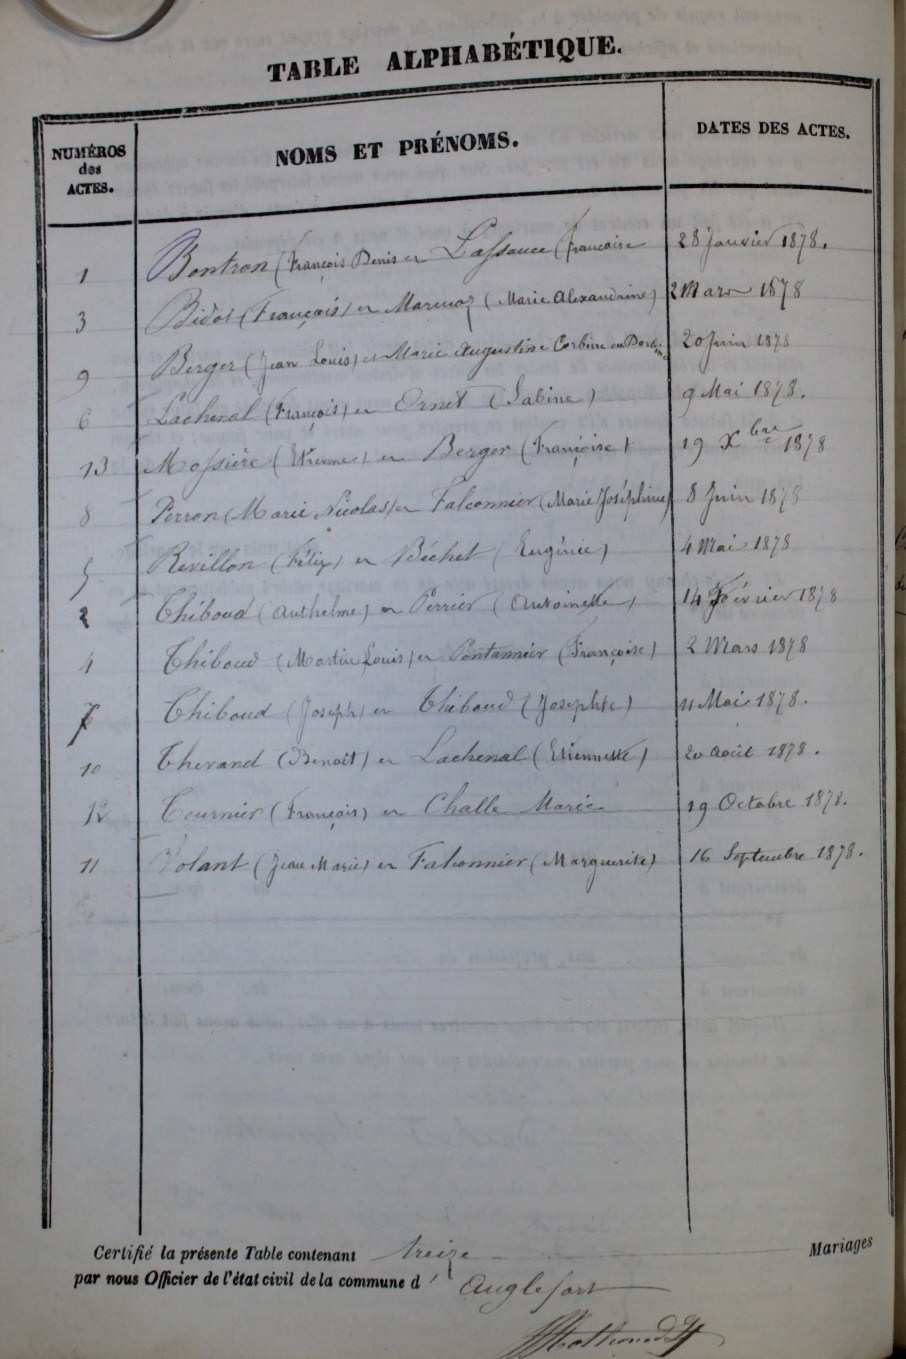 TABLE ALPHABÉTIQUE.
NUMÉROS des ACTES.
NOMS ET PRÉNOMS.
DATES DES ACTES.
1 Bontron (François Denis et Lassauce (Françoise 28 Janvier 1878.
3 Bidot (François) et Marmoz (Marie Alexandrine) 2 Mars 1878
9 Berger (Jean Louis) et Marie Augustine Corbine ou 20 Juin 1878
6 Lachenal (François) et Ornet (Sabine) 9 Mai 1878.
13 Mossière (Etienne) et Berger (Françoise) 19 Xbre 1878
8 Perron (Marie Nicolas) et Falconnier (Marie Joséphine) 8 Juin 1878
5 Revillon (Félix) et Béchet (Eugénie) 4 Mai 1878
2 Thiboud (Anthelme) et Perrier (Antoinette) 14 Février 1878
4 Thiboud (Martin Louis) et Pontannier (Françoise) 2 Mars 1878
7 Thiboud (Joseph) et Thiboud (Josephte) 11 Mai 1878.
10 Thevand (Benoît) et Lachenal (Etiennette) 20 Août 1878.
12 Tournier (François) et Challe Marie 19 Octobre 1878.
11 Volant (Jean Marie) et Falconnier (Marguerite) 16 Septembre 1878.
Certifié la présente Table contenant treize Mariages
par nous Officier de l'état civil de la commune d' Anglefort